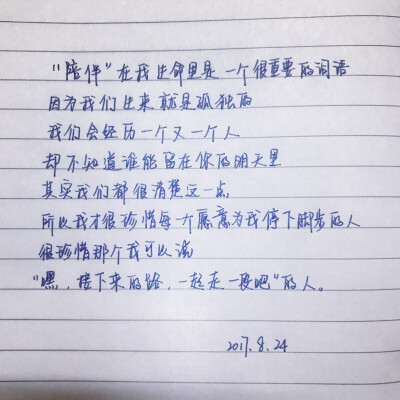 “陪伴”在我生命里是一个很重要的词语
因为我们生来就是孤独的
我们会经历一个又一个人
却不知道谁能留在你的明天里
其实我们都很清楚这一点
所以我才很珍惜每个愿意为我停下脚步的人
很珍惜那个我可以说
“嘿，接下来的路，一起走一段吧”的人。
2017.8.24